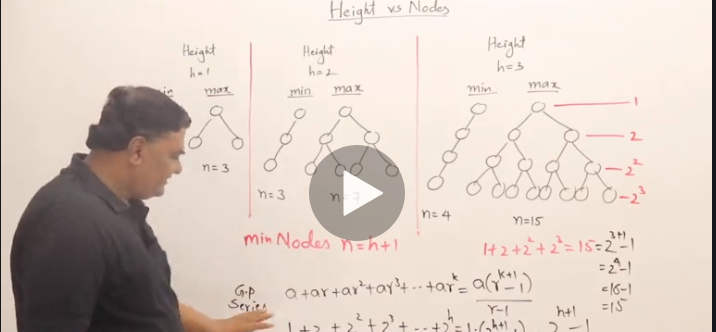 Height vs Nodes
Height
h=1
max
n=3
Height
h=2
min max
n=3
Height
h=3
min max
1
2
2²
2³
n=4
n=15
min Nodes n=h+1
1+2+2²+2³=15=2³⁺¹-1
=2⁴-1
=16-1
=15
G.P
Series
a+ar+ar²+ar³+...+arᵏ=a(rᵏ⁺¹-1)
r-1
1+2+2²+2³+...+2ʰ=1.(2ʰ⁺¹